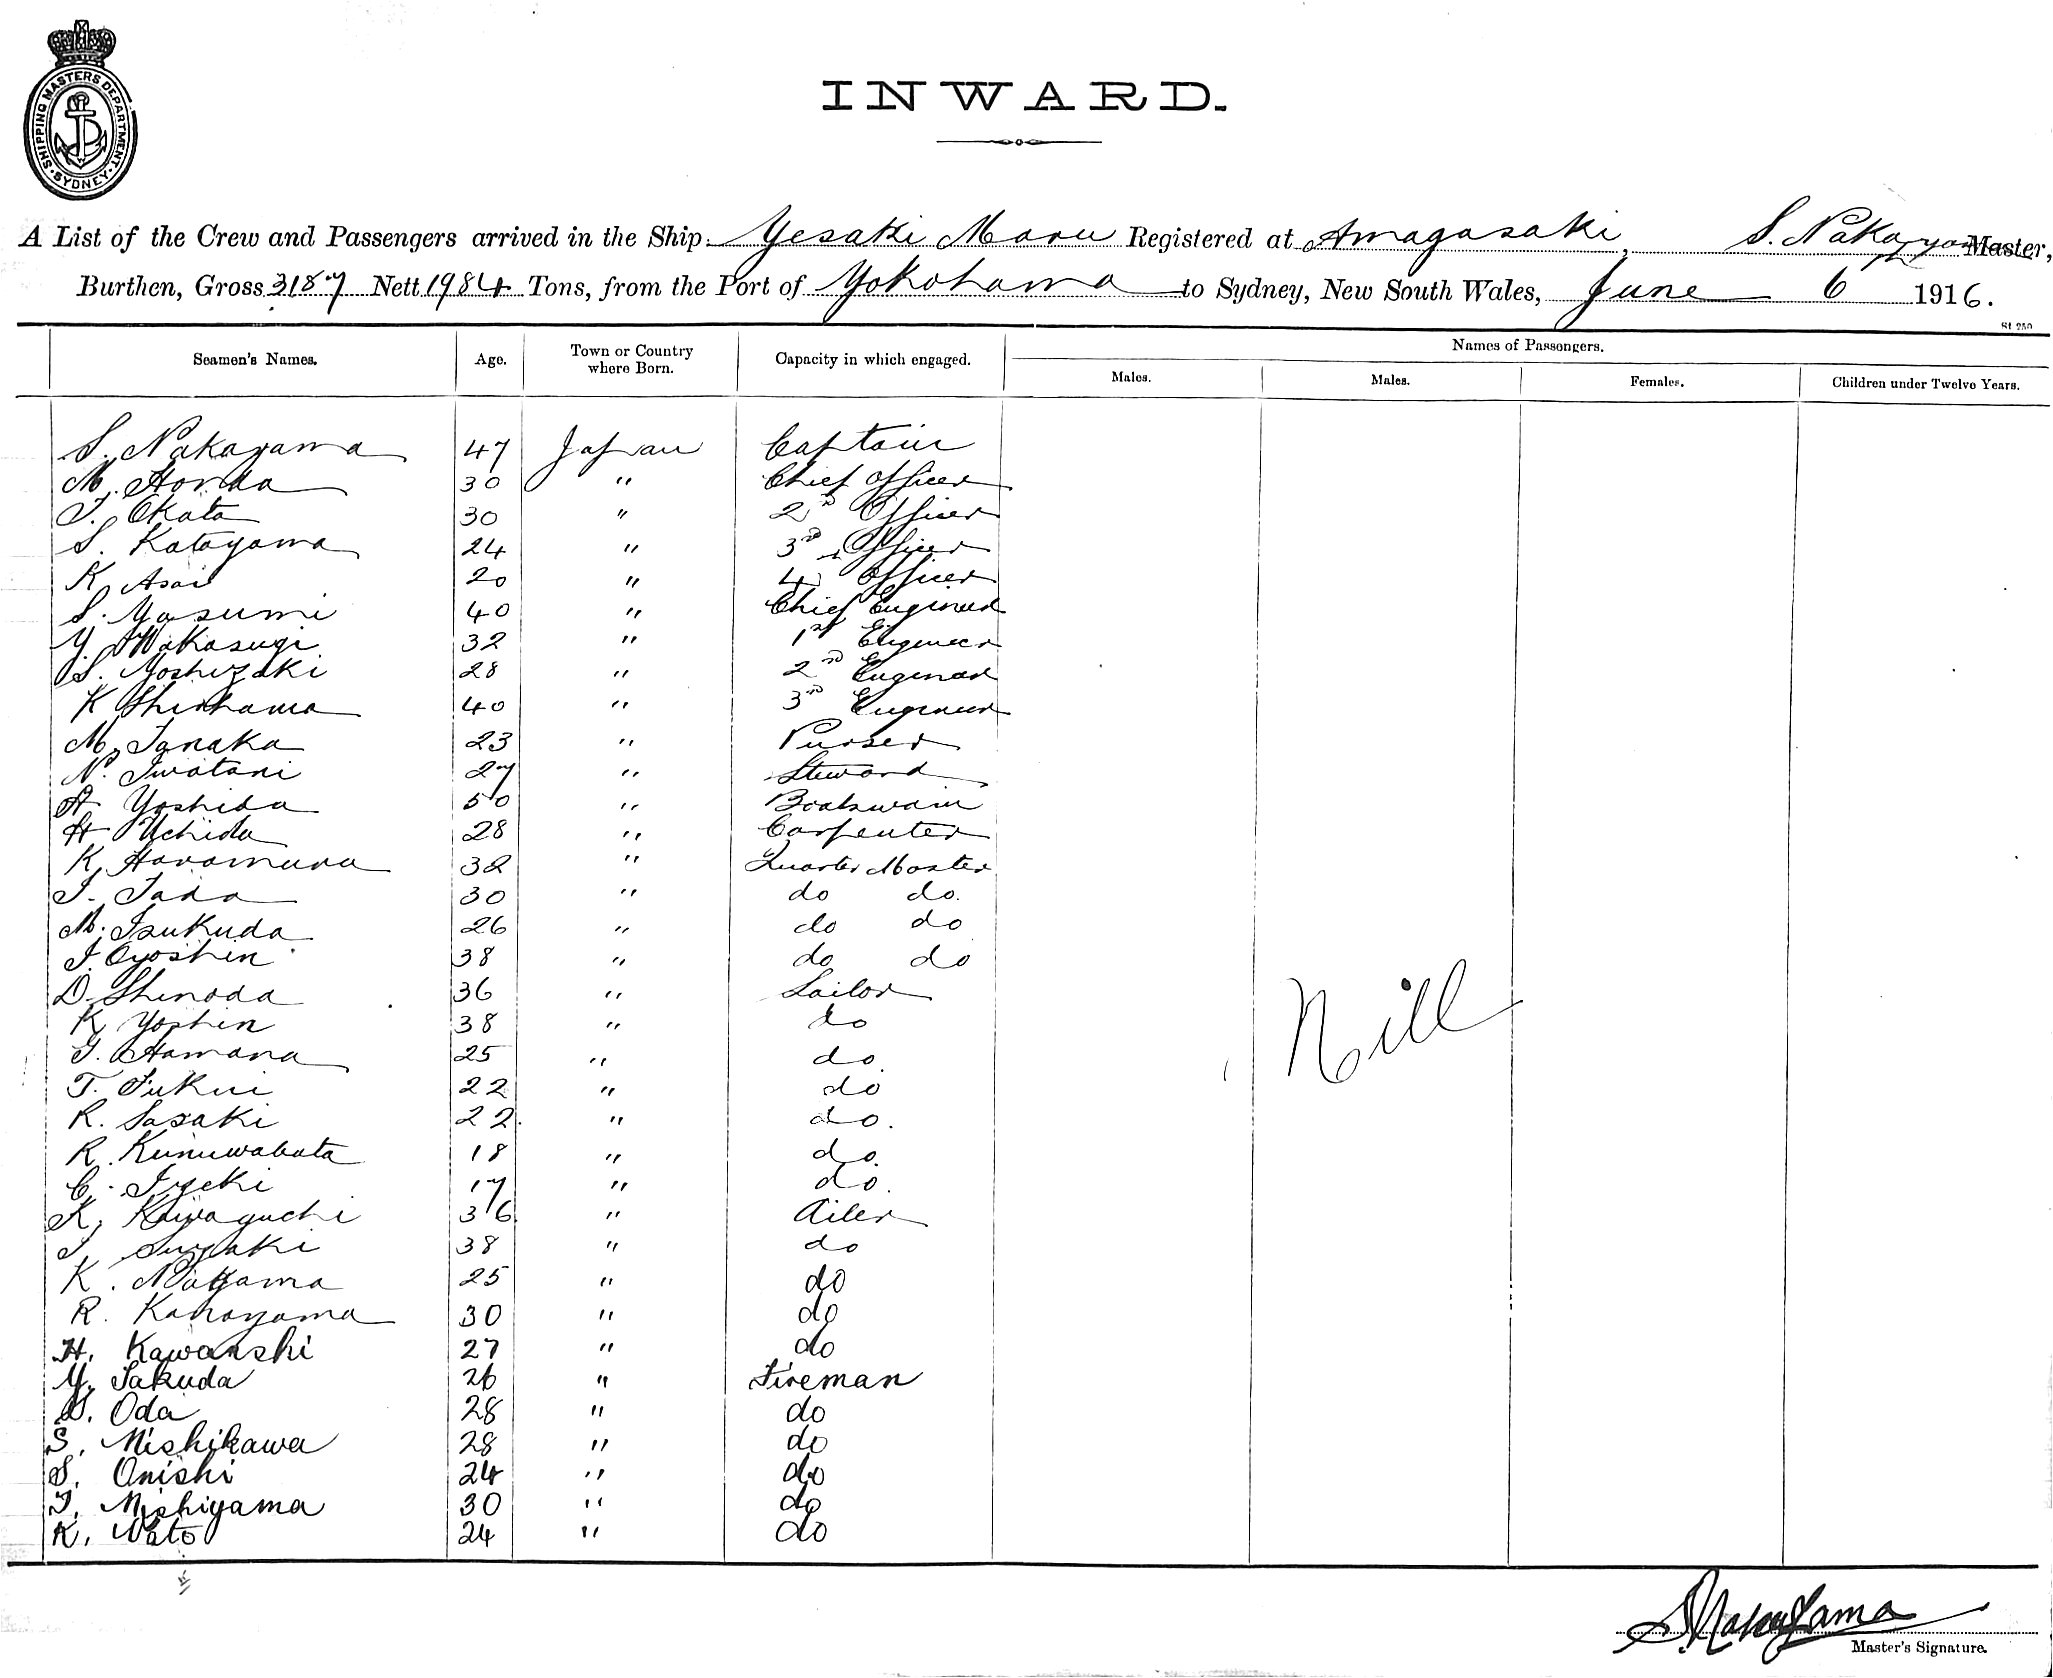 SHIPPING MASTERS DEPARTMENT SYDNEY
INWARD.
A List of the Crew and Passengers arrived in the Ship Yesaki Maru Registered at Amagasaki, S. Nakayama Master,
Burthen, Gross 3187 Nett 1984 Tons, from the Port of Yokohama to Sydney, New South Wales, June 6 1916.
St 250
Seamen's Names. Age. Town or Country where Born. Capacity in which engaged. Names of Passengers.
Males. Males. Females. Children under Twelve Years.
S. Nakayama 47 Japan Captain
M. Honda 30 " Chief Officer
T. Okata 30 " 2nd Officer
S. Katayama 24 " 3rd Officer
K. Asai 20 " 4 Officer
S. Yasumi 40 " Chief Engineer
Y. Wakasugi 32 " 1st Engineer
S. Yoshizaki 28 " 2nd Engineer
K 40 " 3rd Engineer
M. Tanaka 23 " Purser
N. Iwatani 27 " Steward
Yoshida 50 " Boatswain
H Uchida 28 " Carpenter
K. Haramura 32 " Quarter Master
T. Tada 30 " do do.
M. Tsukuda 26 " do do
38 " do do
D. Shinoda 36 " Sailor
K. Yoshin 38 " do
Hamana 25 " do.
T. Fukui 22 " do
R. Sasaki 22. " do.
R. 18 " do.
C. 17 " do.
K. Kawaguchi 36 " Ailer
38 " do
K. 25 " do
R. 30 " do
H. Kawanshi 27 " do
Y. Takuda 26 " Fireman
Oda 28 " do
S. Nishikawa 28 " do
S. Onishi 24 " do
T. Nishiyama 30 " do
K. 24 " do
Nill
S. Nakayama
Master's Signature.